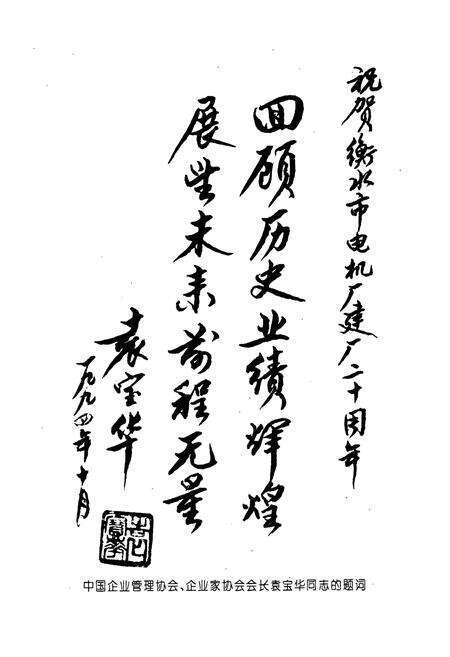 祝贺衡水市电机厂建厂二十周年
回顾历史业绩辉煌
展望未来前程无量
袁宝华
一九九四年十月
中国企业管理协会、企业家协会会长袁宝华同志的题词